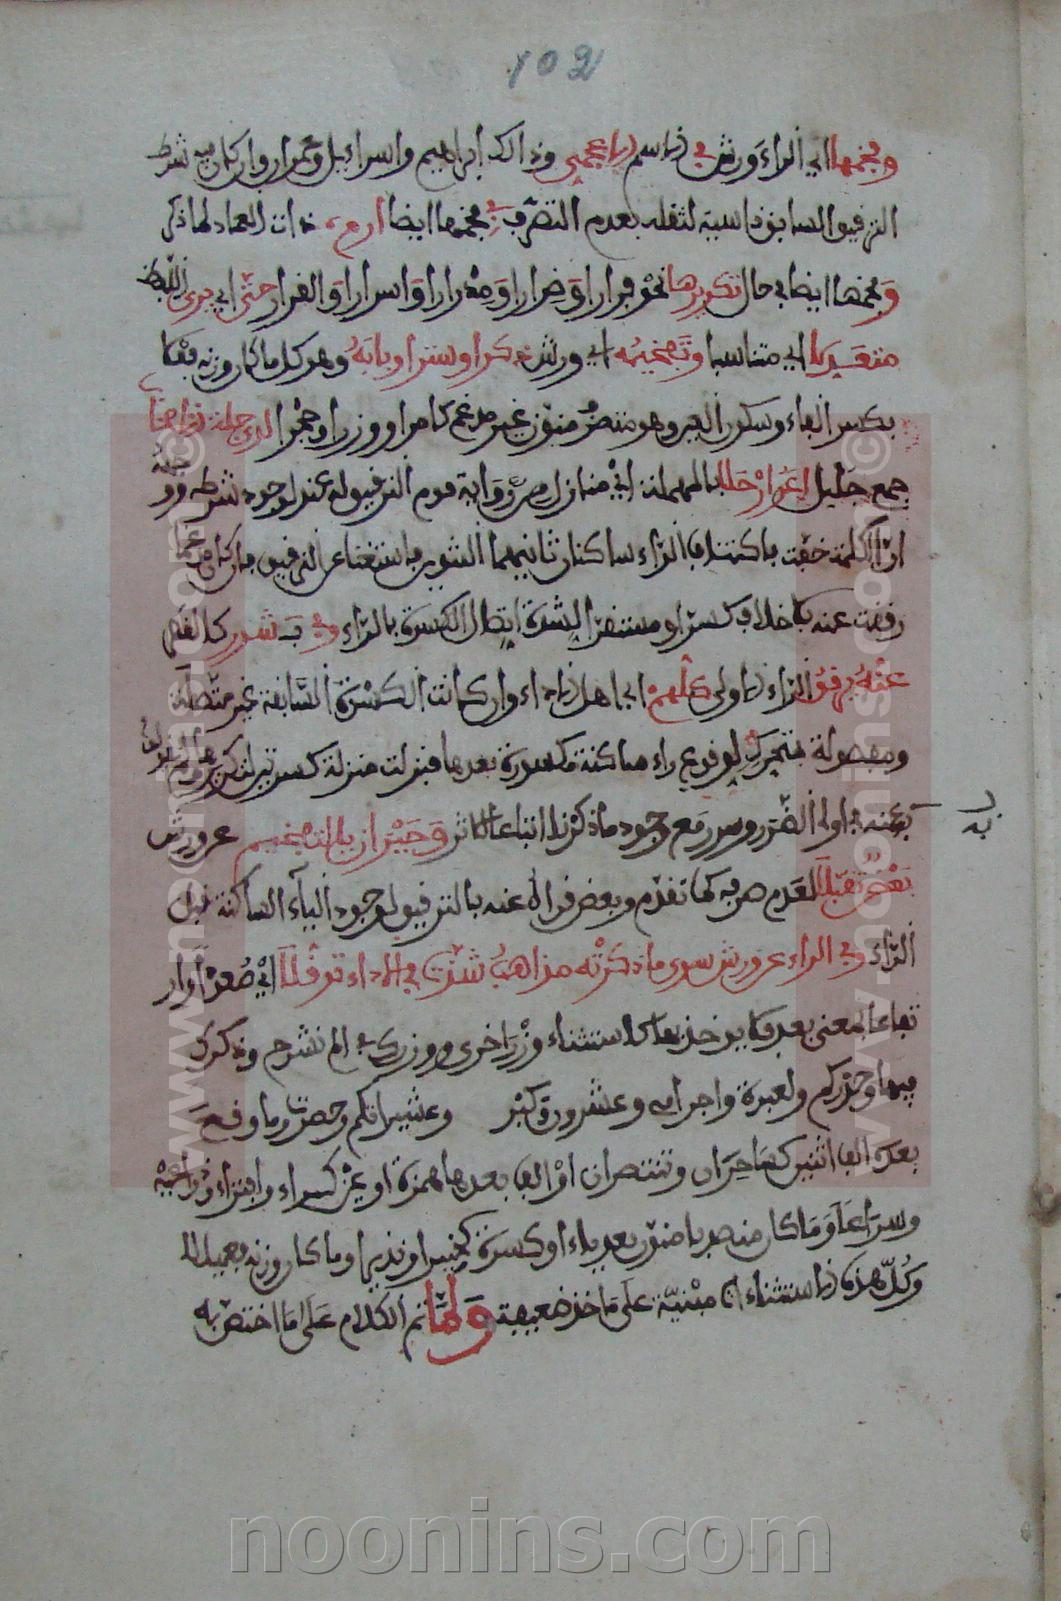 102
وفخمها اي الراء ورش في الاسم الاعجمي وذالك ابراهيم واسراءيل وعمران وان كان فيه شرط
الترفيق السابق مناسبة لثقله بعدم التصرف وفخمها ايضا في ارم ذات العماد لما ذكر
وفخمها ايضا في حال تكريرها نحو فرارا وضرارا ومدرارا واسرارا والفرار حتى اي يرى اللفظ
متعدلا اي متناسبا وتفخيمه اي ورش ذكرا وسترا وبابه وهو كل ما كان وزنه فعلا
بكسر الفاء وسكون العين وهو منصوب منون غير مدغم كامرا ووزرا وحجرا لدى جلة الاصحاب
جمع جليل اعمر ارحلا بالمهملة اي منازل ورواية قوم الترقيق له عند لوجود شرطه
او الكلمة خفت باكتناف الراء ساكنان ثانيهما التنوين باستغنا عن الترفيق
رققت عنه بلا خلاف كسرا ومستقرا لشدة اتصال الكسرة بالراء وفي بشرر كلهم
عنه يرقق الراء الاولى كلهم اي اهل الاداء وان كانت الكسرة السابقة غير متصلة
ومفصولة بمتحرك لوقوع راء ساكنة مكسورة بعدها فنزلت منزلة كسرتين
عنه في اولى الضرر وسرر مع وجود ما ذكرنا اتباعا للاثر وحيران بالتفخيم عن ورش
به
بعض تقبلا لعدم صرفه كما تقدم وبعض قراه عنه بالترفيق لوجود الياء الساكنة قبل
الراء وفي الراء عن ورش سوى ما ذكرته مذاهب شذت في الاداء توقلا اي صعودا وار
تفاعا لمعنى بعد فلا يوخذ بها كاستثناء وزر اخرى ووزرك في الم نشرح وذكرك
فيها وحذركم ولعبرة واجرامي وعشرون وكبر وعشيرتكم وحصرت وما وقع
بعده الف اثنين كساحران وتنتصران او الف بعدها همزة او عين كمراء وافتراء وذراعيه
وسراعا وما كان منصوبا منون بعد ياء او كسرة كخبيرا ونذيرا وما كان وزنه فعيلا
وكل هذه الاستثناءات مبنية على ماخذ ضعيفة ولما تم الكلام على ما اختص به
www.noonins.com©
www.noonins.com©
noonins.com